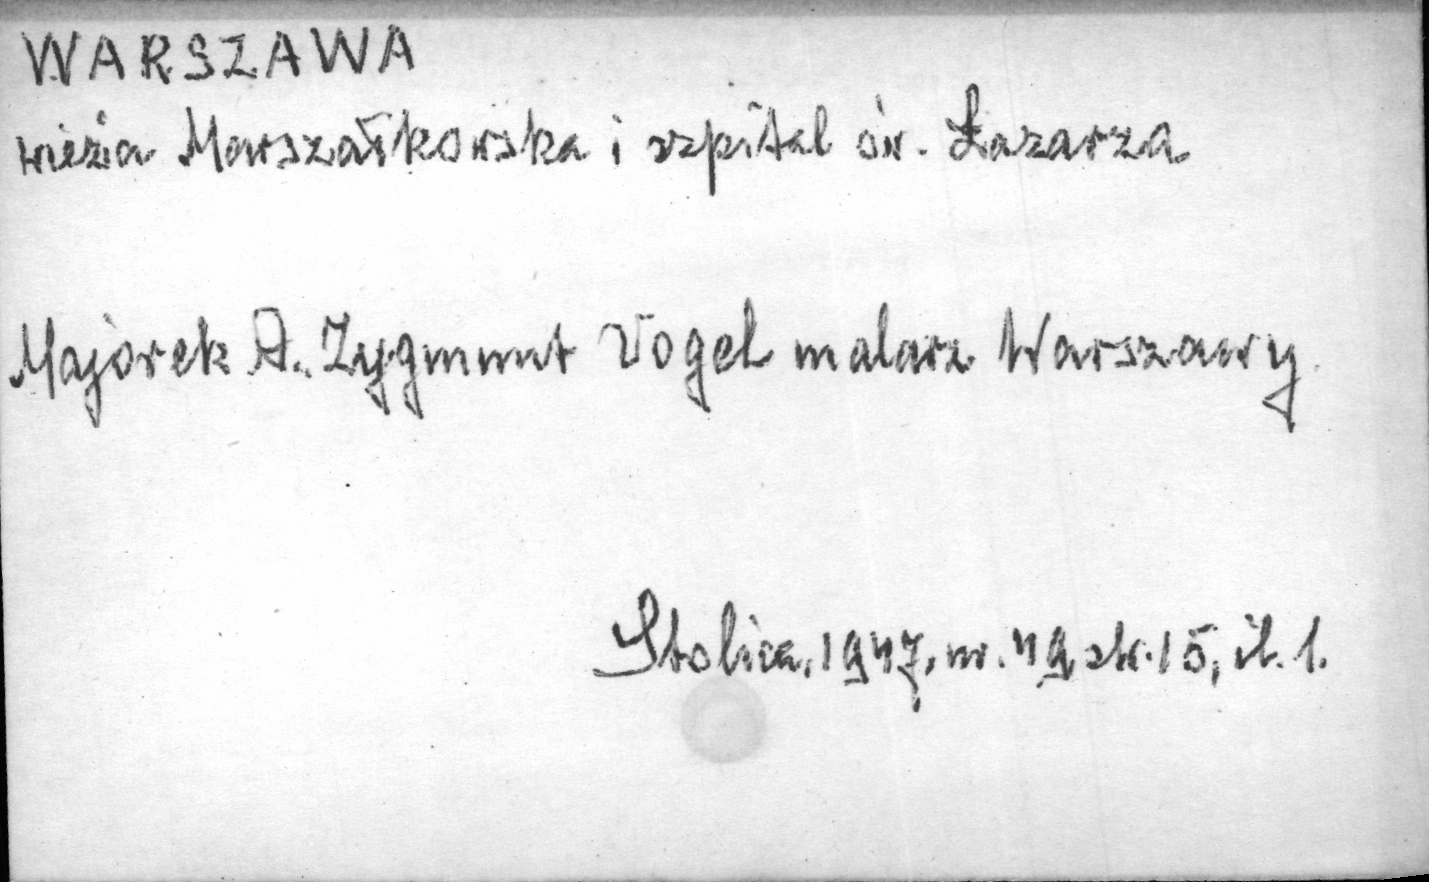 WARSZAWA
wieża Marszałkowska i szpital św. Łazarza
Majorek A. Zygmunt Vogel malarz Warszawy.
Stolica, 1947, nr. 49, str. 15, il. 1.